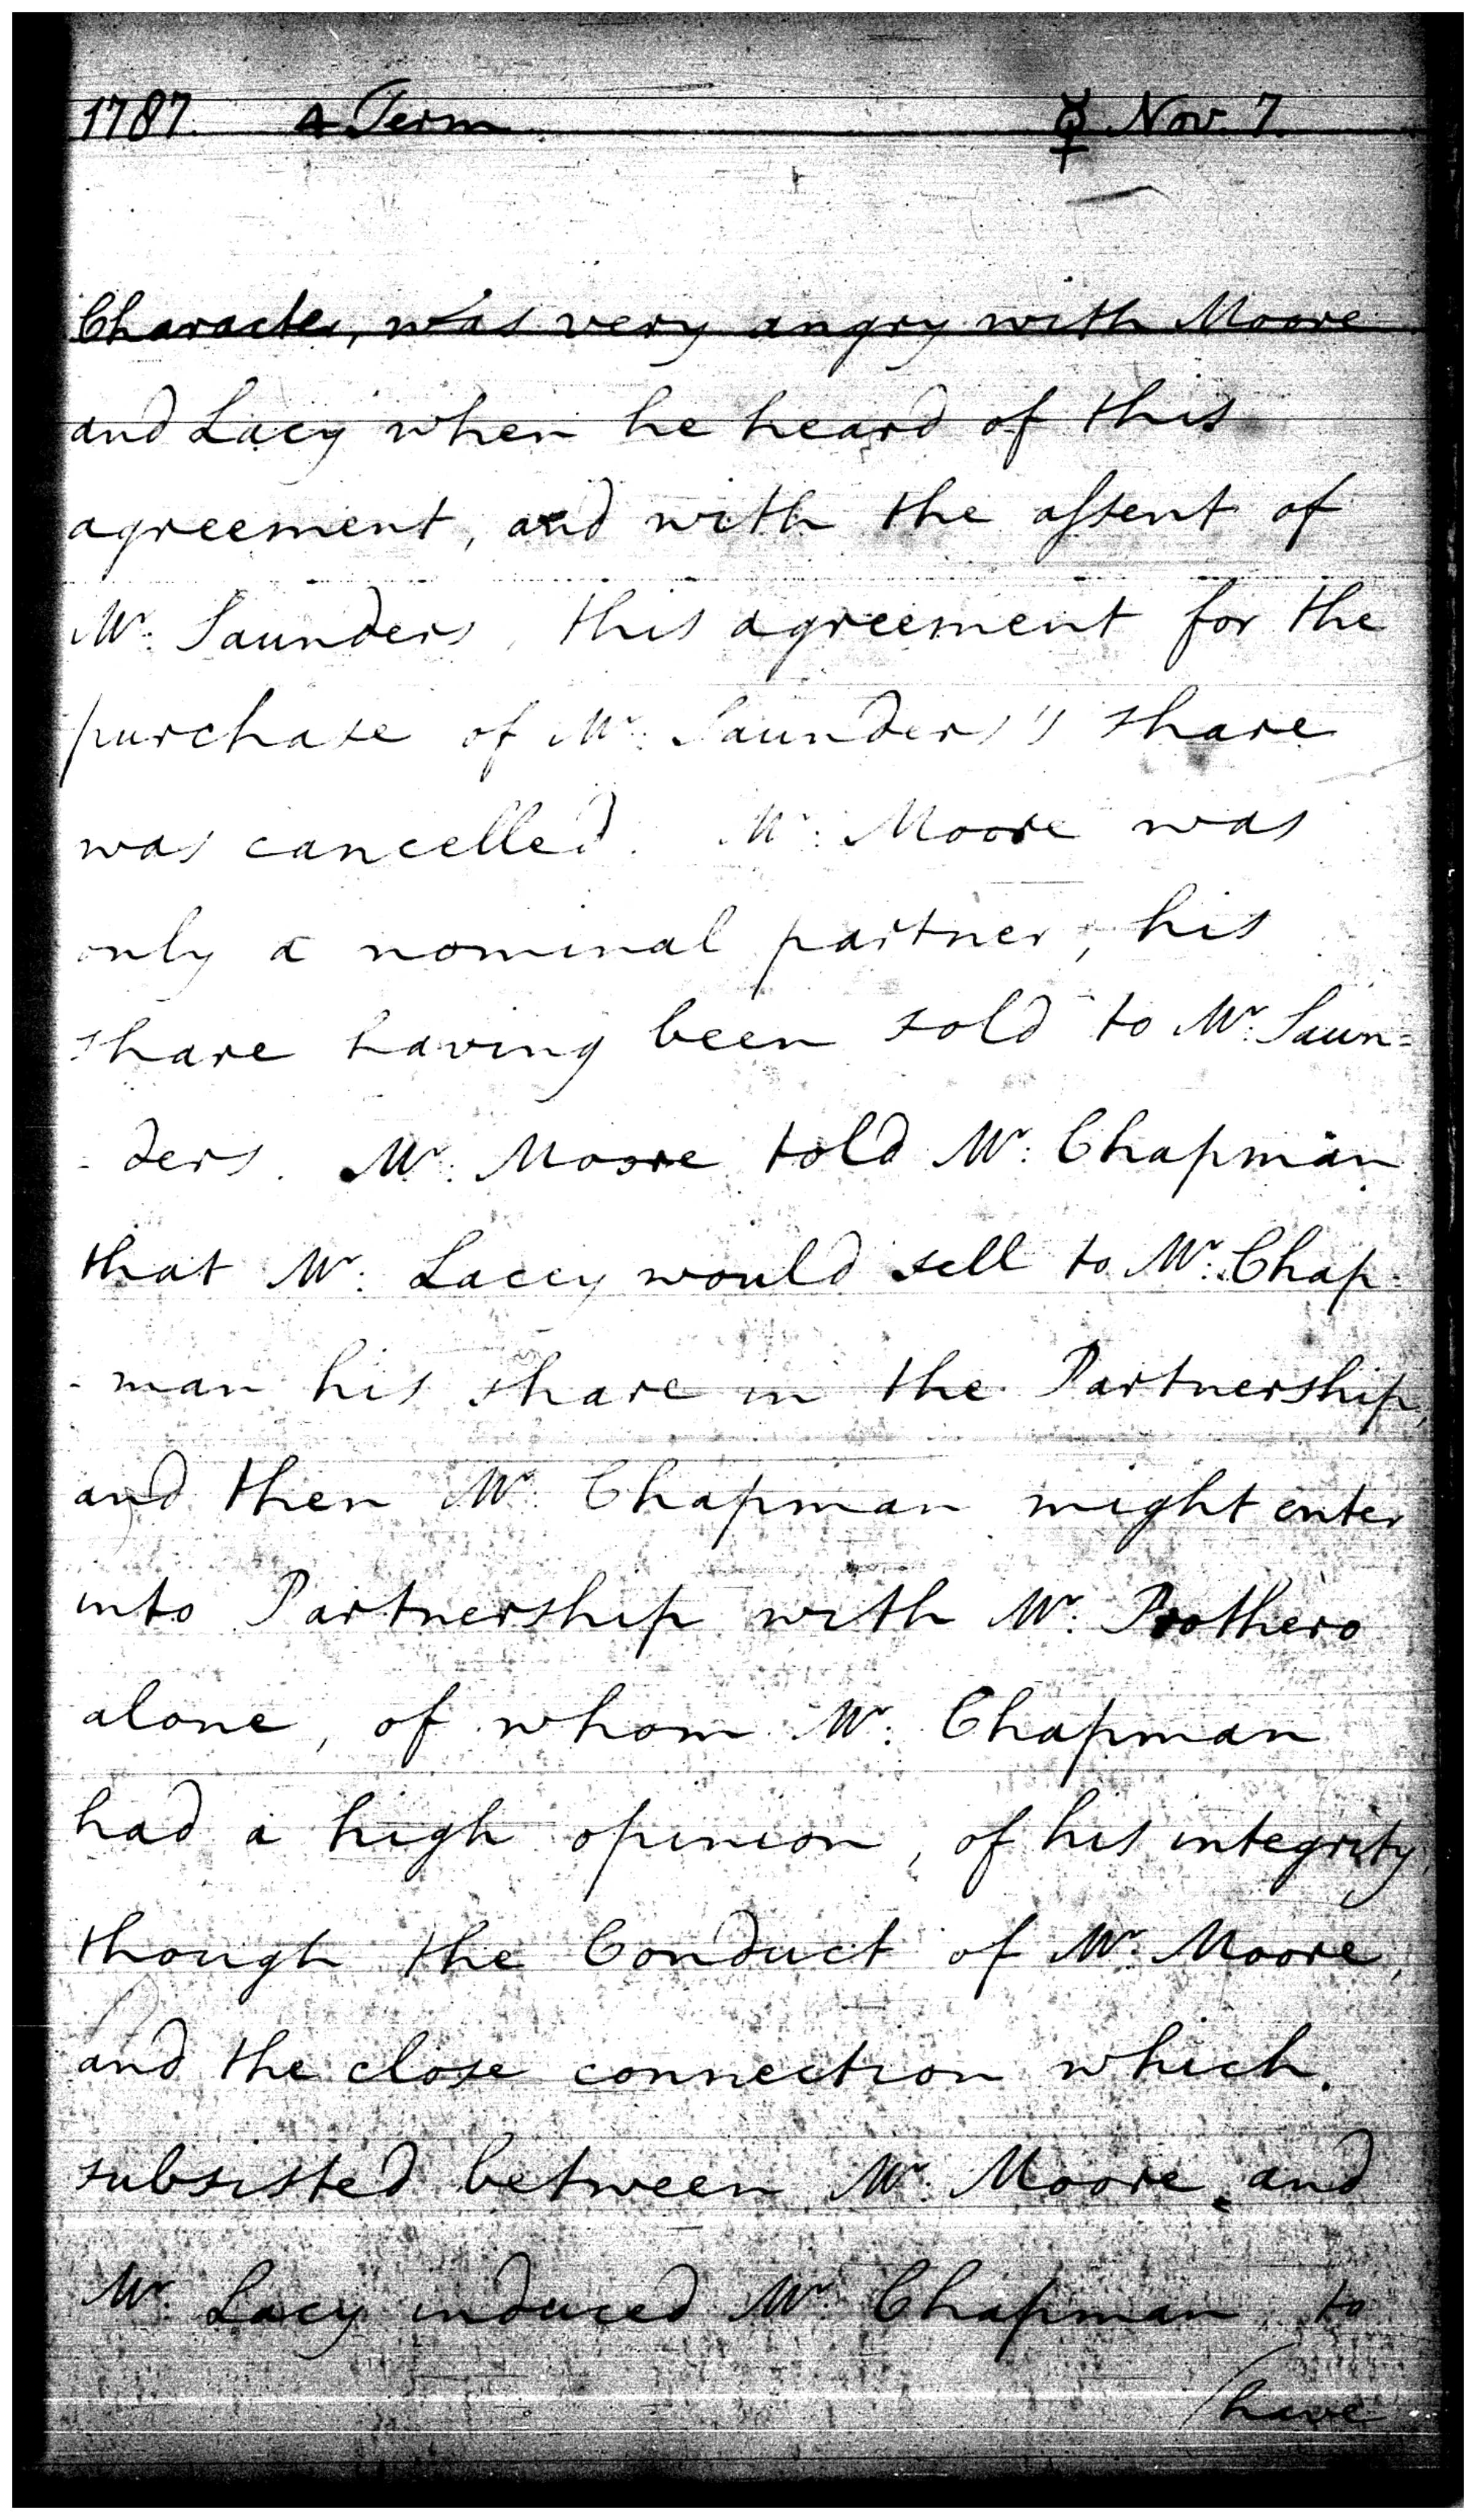 1787. 4 Term ☿ Nov. 7.
Character, was very angry with Moore
and Lacy when he heard of this
agreement, and with the aſsent of
Mr. Saunders, this agreement for the
purchase of Mr. Saunders's share
was cancelled. Mr. Moore was
only a nominal partner, his
share having been sold to Mr. Saun=
-ders. Mr. Moore told Mr. Chapman
that Mr. Lacey would sell to Mr. Chap-
-man his share in the Partnership,
and then Mr. Chapman might enter
into Partnership with Mr. Prothero
alone, of whom Mr. Chapman
had a high opinion, of his integrity,
though the Conduct of Mr. Moore,
and the close connection which
subsisted between Mr. Moore and
Mr. Lacy induced Mr. Chapman to
have